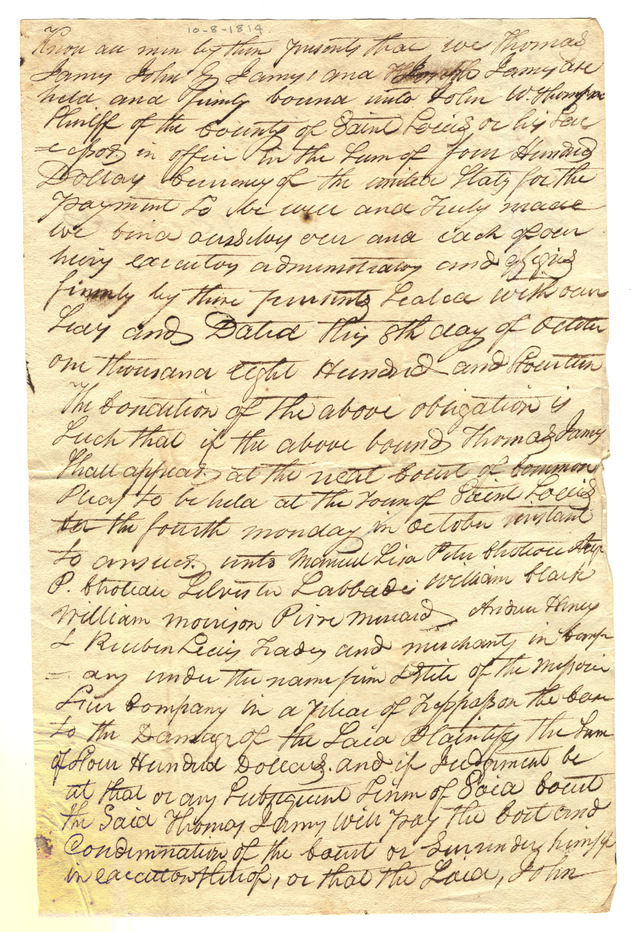 10-8-1814
Know all men by these presents that we Thomas
James John G James and Joseph James are
held and firmly bound unto John W. Thompson
Sheriff of the County of Saint Louis or his Suc
= cessors in office in the Sum of four Hundred
Dollars Currency of the united States for the
payment to be well and truly made
we bind ourselves our and each of our
heirs executors administrators and assigns
firmly by these presents Sealed with our
Seals and Dated this 8th day of October
one thousand eight Hundred and Fourteen
The Condition of the above obligation is
Such that if the above bound Thomas James
Shall appear at the next Court of Common
Pleas to be held at the Town of Saint Louis
the fourth monday in October instant
to answer unto Manuel Lisa Peter Choteau
P. Choteau Silvester Labbadie William Clark
William morrison Pirre menard Andrew Henry
& Reuben Lewis Traders and merchants in Comp
= any under the name firm & Stile of the Missouri
Fur Company in a Pleas of Trespass on the Case
to the Damage of the Said Plaintiffs the Sum
of Four Hundred Dollars. and if Judgment be
at that or any Subsequent Term of Said Court
the Said Thomas James will pay the Cost and
Condemnation of the Court or Surrender himself
in execution thereof, or that the Said, John